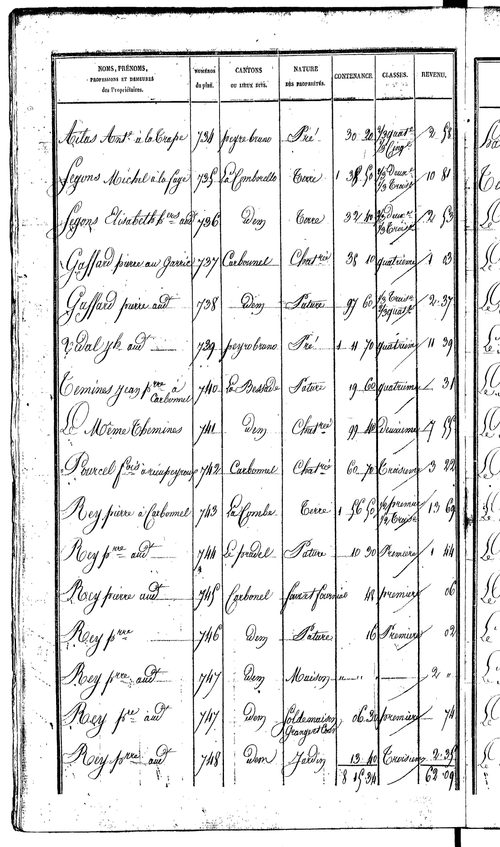 NOMS, PRÉNOMS, PROFESSIONS ET DEMEURES des Propriétaires. NUMÉROS du plan. CANTONS OU LIEUX DITS. NATURE DES PROPRIÉTÉS. CONTENANCE. CLASSES. REVENU.
Antᵉ à la Trape 734 peyrebruno Pré 30 20 ⅔ quatᵉ ⅓ Cinqᵉ 2 58
Segons Michel à la Fage 735 La Combrello Terre 1 38 50 ½ Deux ½ Troisᵉ 10 81
Segons Elisabeth audᵗ 736 idem Terre 32 40 ½ Deux ½ Troisᵉ 2 53
Gaffard pierre au Garric 737 Carbonnel Chatʳⁱᵉ 38 10 quatrième 1 03
Gaffard pierre audᵗ 738 idem Pature 97 60 ⅓ Troisᵉ ⅔ quatᵉ 2 37
Vidal Jh audᵗ 739 peyrobruno Pré 1 11 70 quatrième 11 39
Temines Jean pʳʳᵉ à Carbonnel 740 La Bessade Pature 19 60 quatrieme 31
Le Même Themines 741 idem Chatʳⁱᵉ 99 40 Deuxieme 7 55
Pourcel fᵒⁱˢ à rieupeyroux 742 Carbonnel Chatʳⁱᵉ 60 70 Troisieme 3 22
Rey pierre à Carbonnel 743 La Combe Terre 1 56 50 ½ premier ½ Troisᵉ 13 69
Rey pʳʳᵉ audᵗ 744 Le pradel Pature 10 30 Premiere 1 44
Rey pierre audᵗ 745 Carbonel four et fournial 48 premiere 06
Rey pʳʳᵉ 746 idem Pature 16 Premiere 02
Rey pʳʳᵉ audᵗ 747 idem Maison " " " 2 "
Rey pʳᵉ audᵗ 747 idem Sol de maison Grange et Cour 06 30 premiere 74
Rey pʳʳᵉ audᵗ 748 idem Jardin 13 40 Troisieme 2 35
8 15 34 62 09